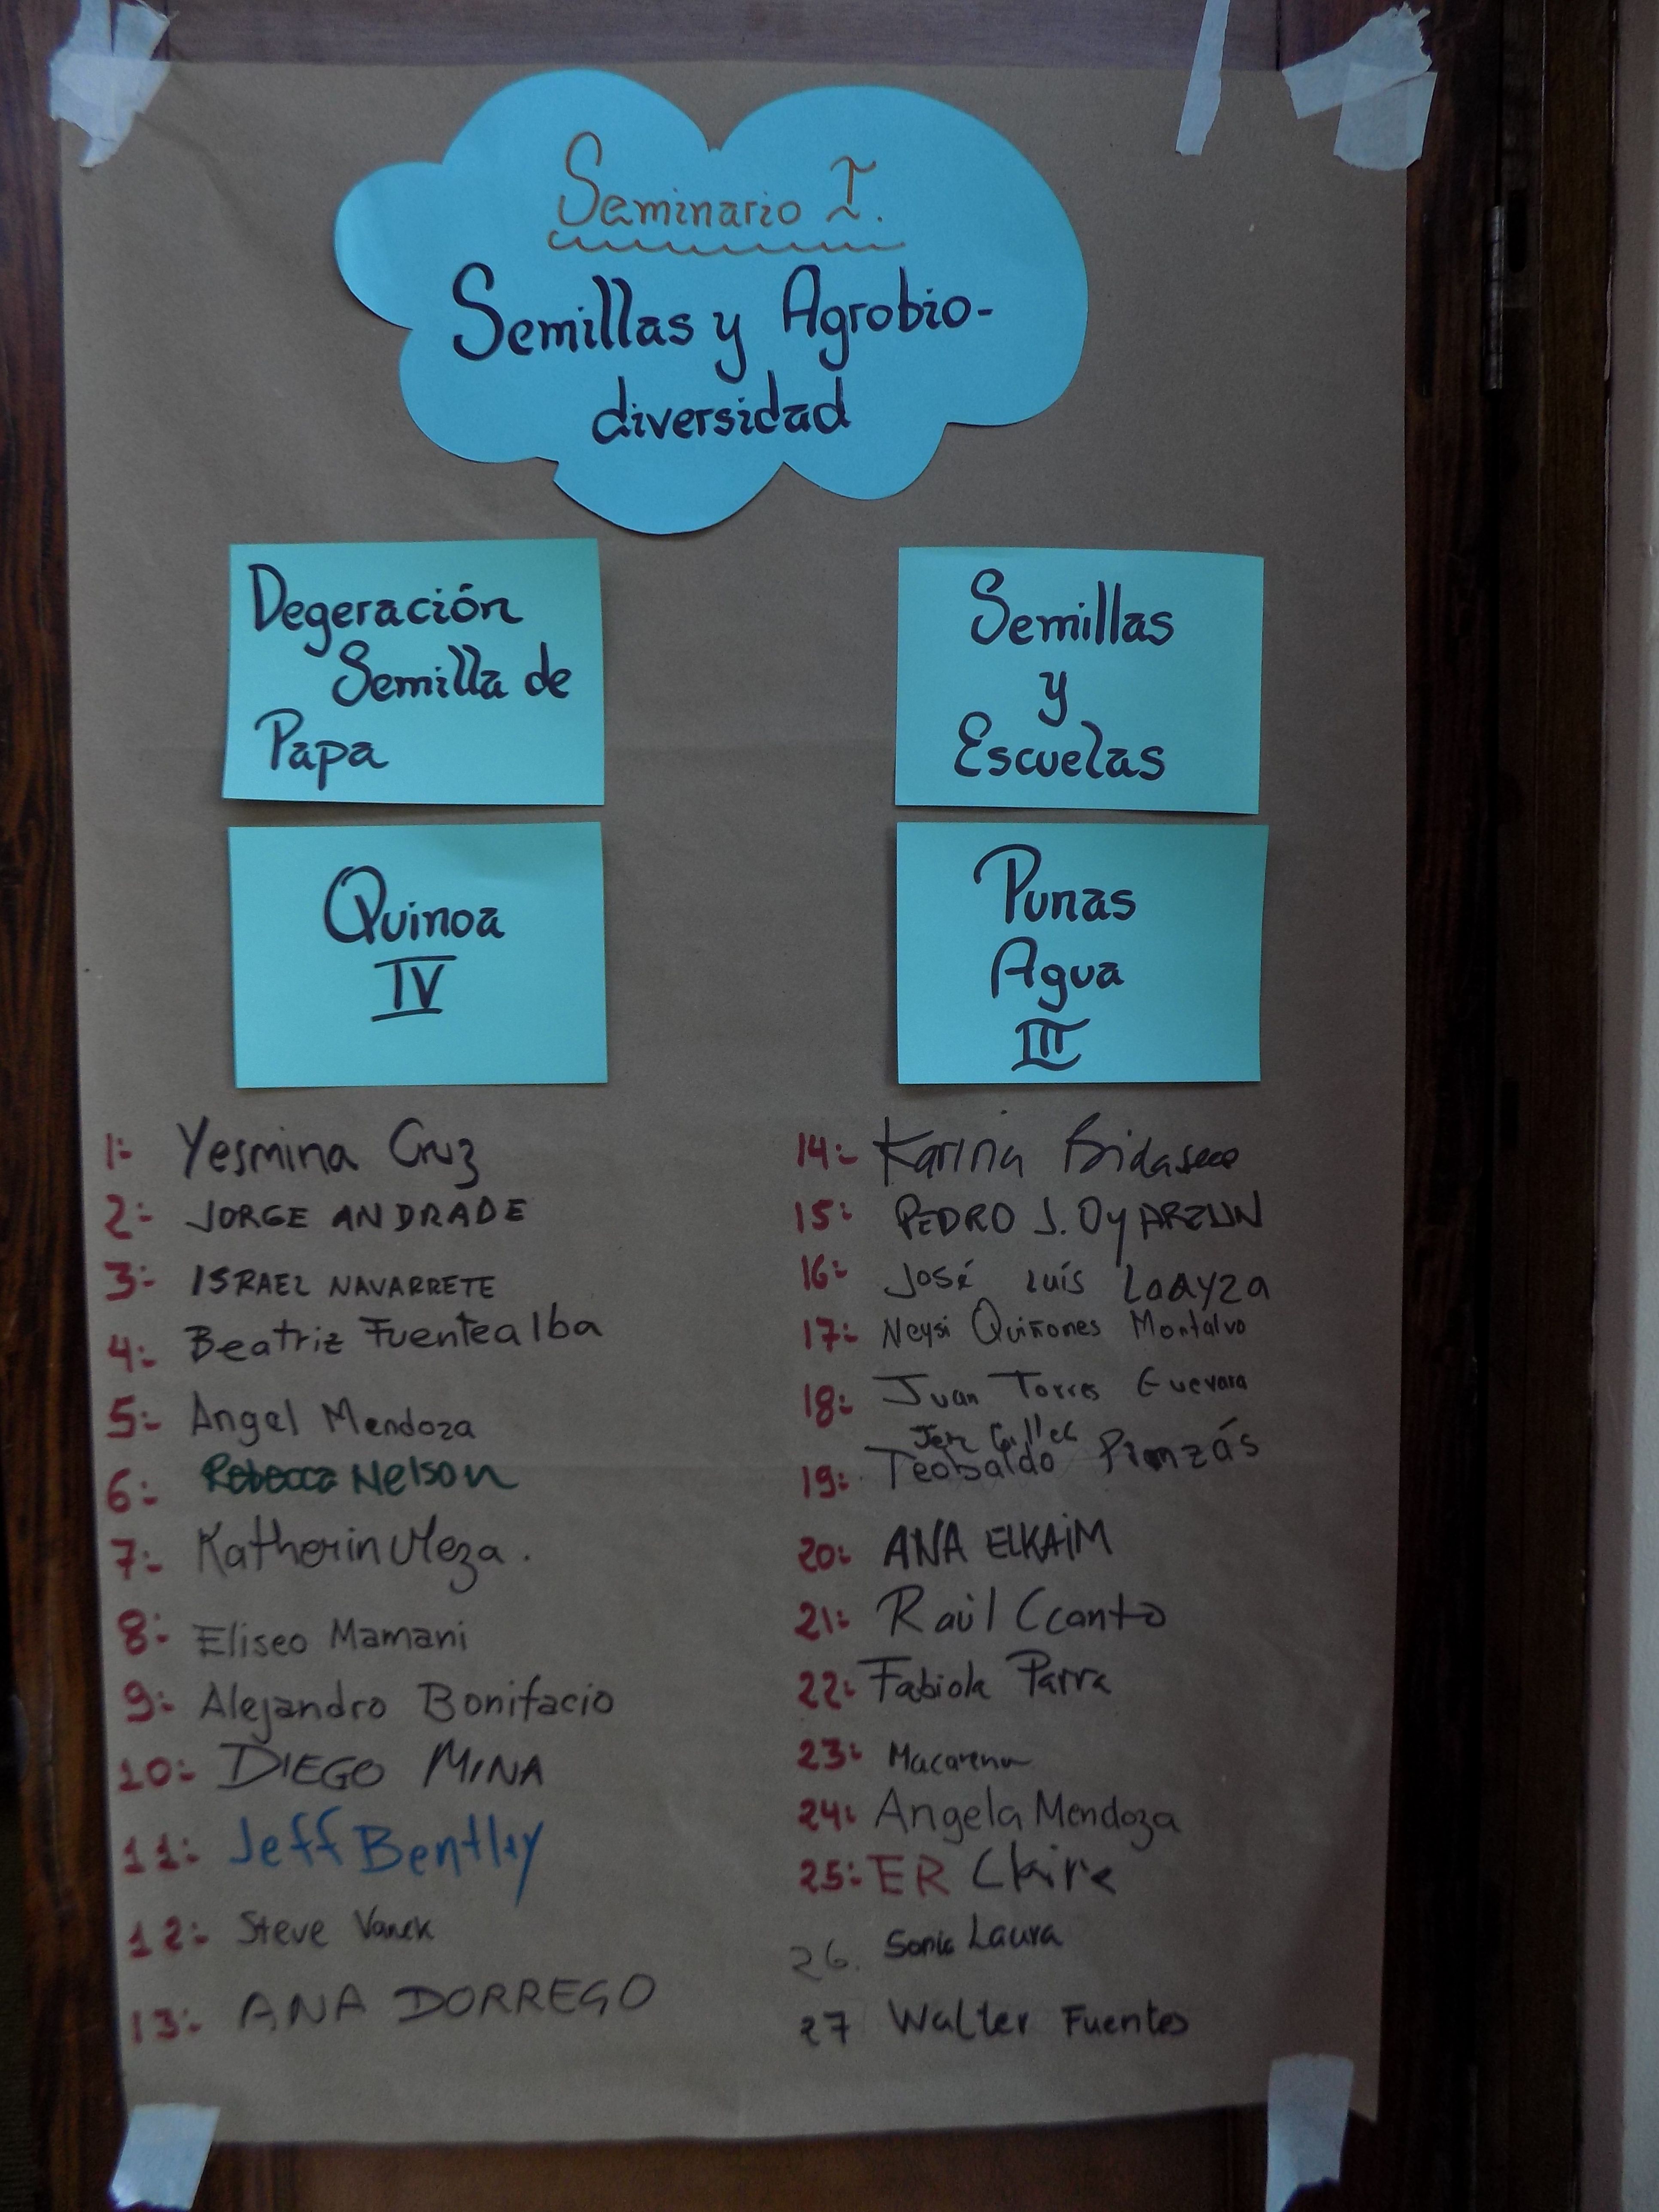 Seminario I.
Semillas y Agrobio-
diversidad
Degeración
Semilla de
Papa
Semillas
y
Escuelas
Quinoa
IV
Punas
Agua
III
1:- Yesmina Cruz
2:- JORGE ANDRADE
3:- ISRAEL NAVARRETE
4:- Beatriz Fuentealba
5:- Angel Mendoza
6:- Rebecca Nelson
7:- Katherin Meza.
8:- Eliseo Mamani
9:- Alejandro Bonifacio
10:- DIEGO MINA
11:- Jeff Bentley
12:- Steve Vanek
13:- ANA DORREGO
14:- Karina Bidaseca
15:- PEDRO J. OyARZUN
16:- José Luís Loayza
17:- Neysi Quiñones Montalvo
18:- Juan Torres Guevara
19:- Teobaldo Pinzás
20:- ANA ELKAiM
21:- Raúl Ccanto
22:- Fabiola Parra
23:- Macarena
24:- Angela Mendoza
25:- ER Claire
26. Sonia Laura
27 Walter Fuentes